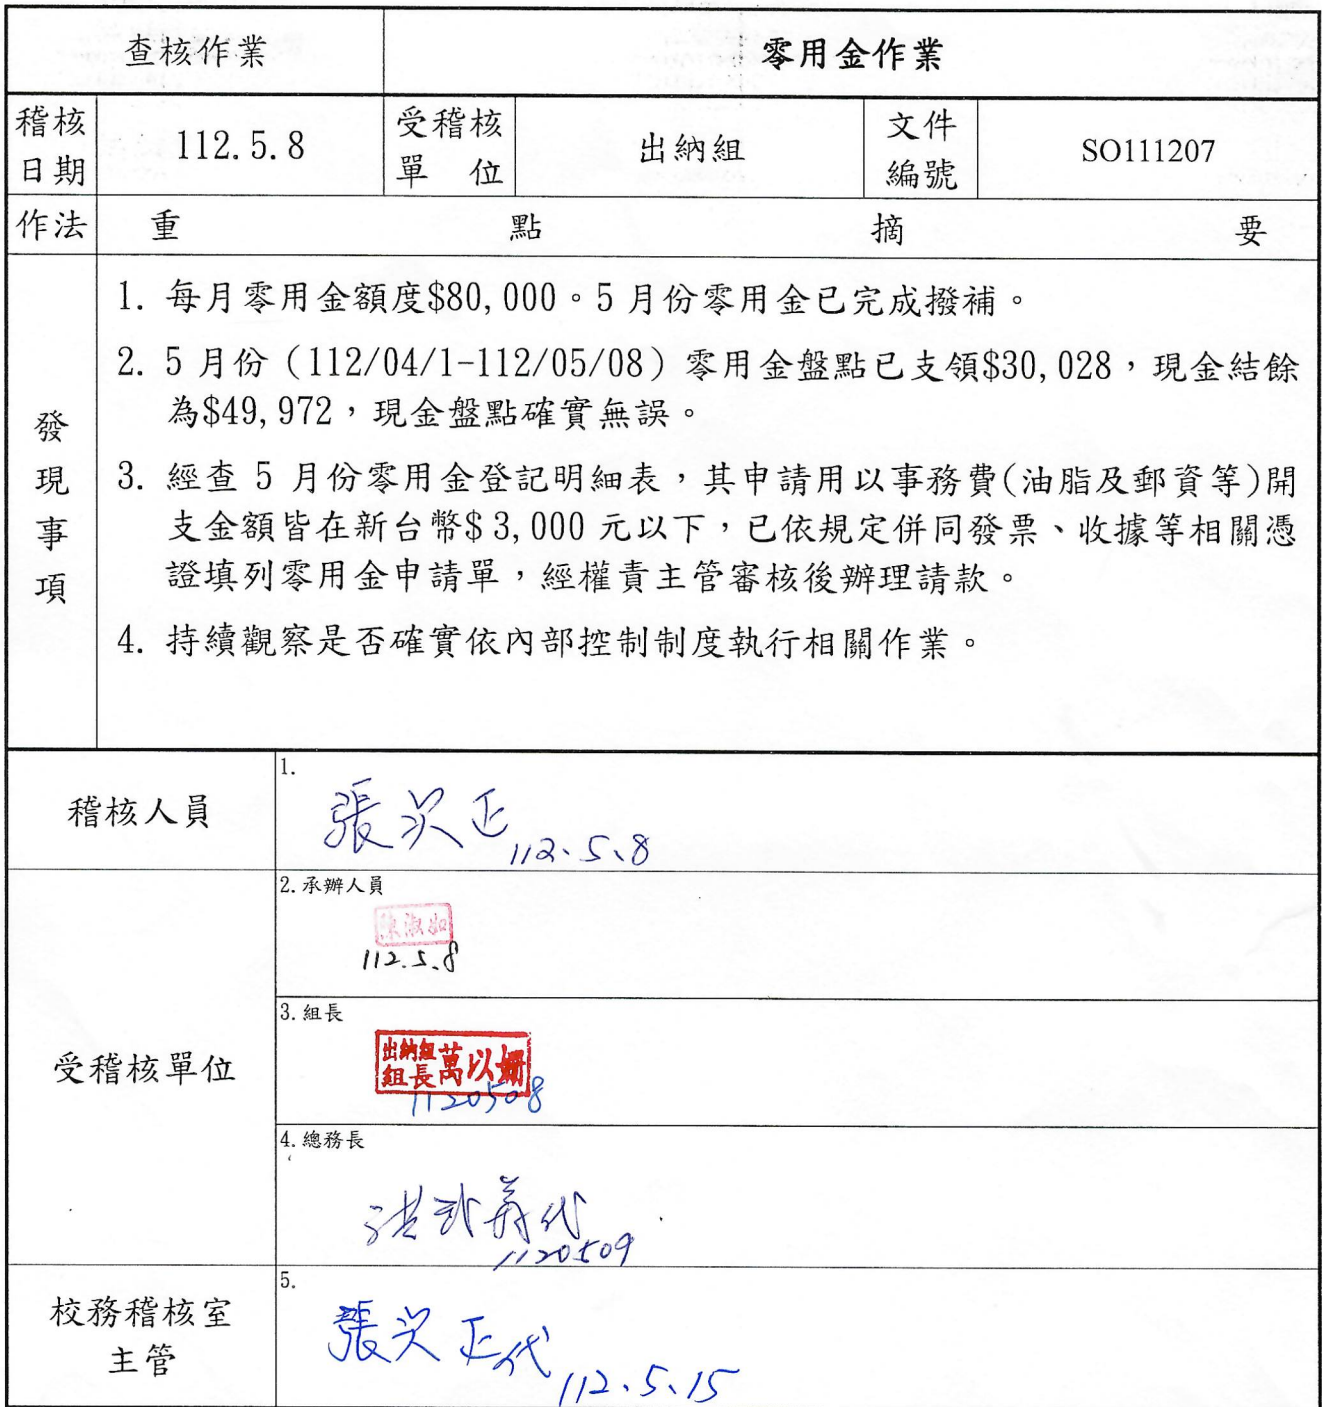 查核作業
零用金作業
稽核日期
112.5.8
受稽核單位
出納組
文件編號
SO111207
作法
重點摘要
發現事項
1. 每月零用金額度$80,000。5 月份零用金已完成撥補。
2. 5 月份（112/04/1-112/05/08）零用金盤點已支領$30,028，現金結餘
為$49,972，現金盤點確實無誤。
3. 經查 5 月份零用金登記明細表，其申請用以事務費(油脂及郵資等)開
支金額皆在新台幣$3,000 元以下，已依規定併同發票、收據等相關憑
證填列零用金申請單，經權責主管審核後辦理請款。
4. 持續觀察是否確實依內部控制制度執行相關作業。
稽核人員
1.
張次正
112、5、8
受稽核單位
2.承辦人員
陳淑如
112.5.8
3.組長
出納組
組長萬以姍
1120508
4.總務長
義代
1120509
校務稽核室
主管
5.
張次正代
112、5、15